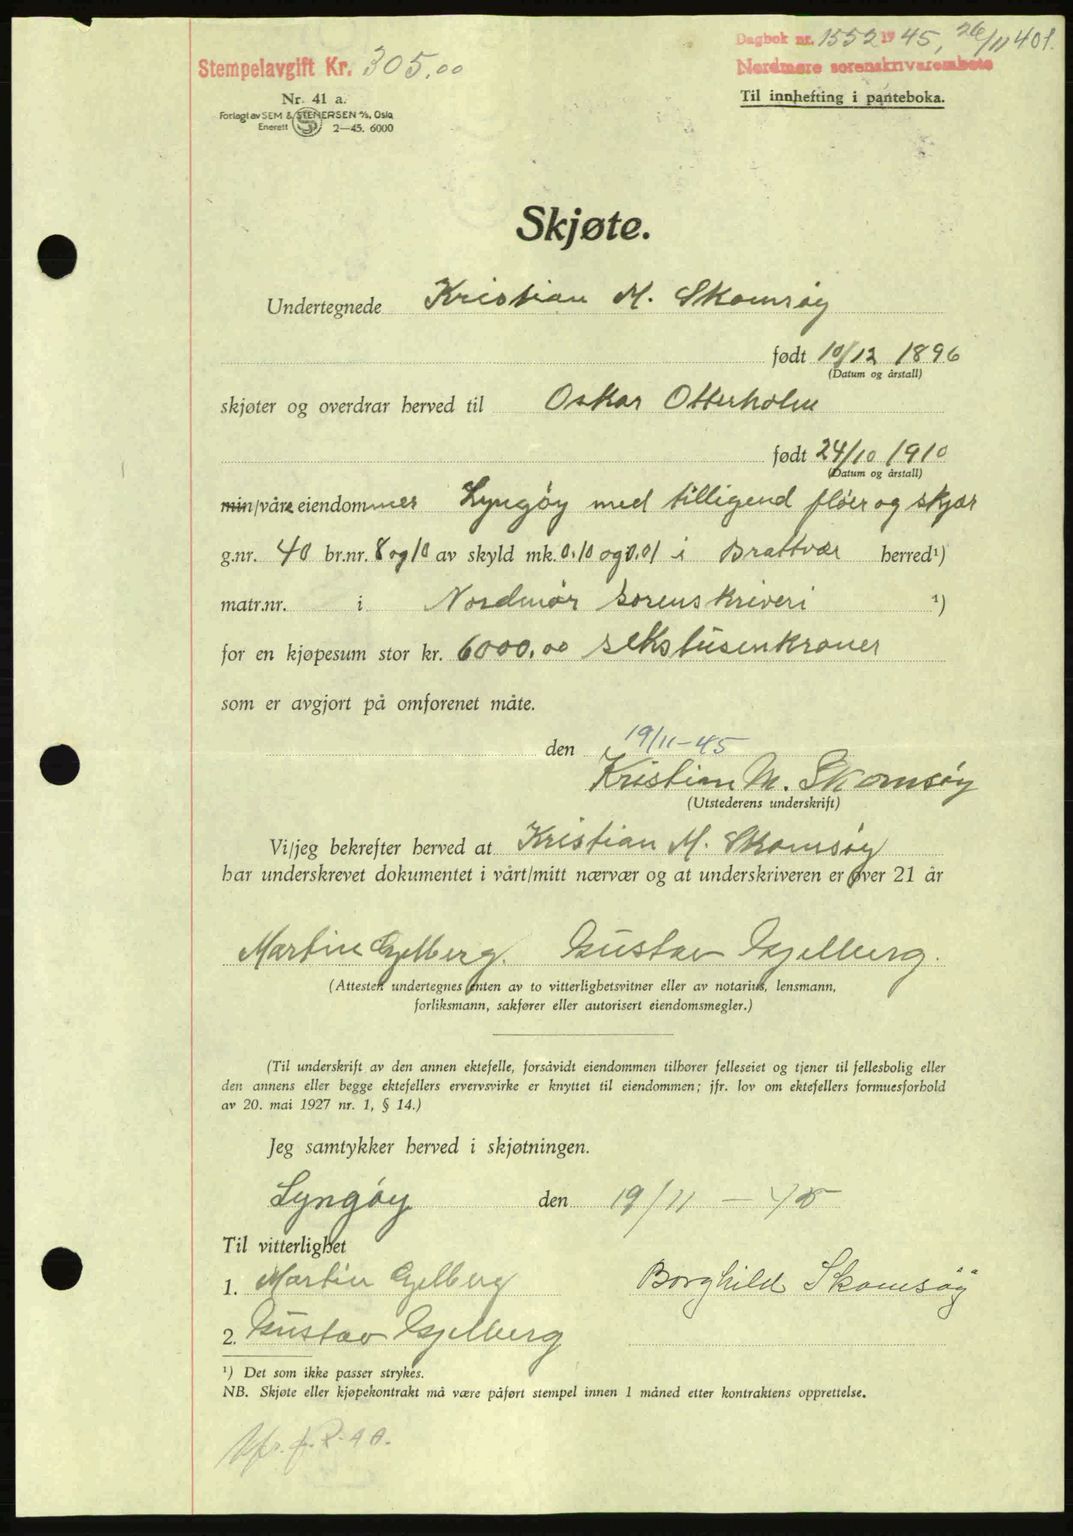 Stempelavgift Kr. 305,00
Dagbok nr. 1552 1945, 26/11 401.
Nordmøre sorenskriverembete
Til innhefting i panteboka.
Nr. 41 a.
Forlagt av SEM & STENERSEN A/S, Oslo
Enerett 2–45. 6000
Skjøte.
Undertegnede Kristian M. Skomsøy
født 10/12 1896
(Datum og årstall)
skjøter og overdrar herved til Oskar Otterholm
født 24/10 1910
(Datum og årstall)
min/våre eiendommer Lyngøy med tilligend fløer og skjær
g.nr. 40 br.nr. 8 og 10 av skyld mk. 0.10 og 0.01 i Brattvær herred¹)
matr.nr. i Nordmør sorenskriveri ¹)
for en kjøpesum stor kr. 6000,00 sekstusenkroner
som er avgjort på omforenet måte.
den 19/11-45
Kristian M. Skomsøy
(Utstederens underskrift)
Vi/jeg bekrefter herved at Kristian M. Skomsøy
har underskrevet dokumentet i vårt/mitt nærvær og at underskriveren er over 21 år
Martin Gjelberg. Gustav Gjelberg.
(Attesten undertegnes enten av to vitterlighetsvitner eller av notarius, lensmann,
forliksmann, sakfører eller autorisert eiendomsmegler.)
(Til underskrift av den annen ektefelle, forsåvidt eiendommen tilhører felleseiet og tjener til fellesbolig eller
den annens eller begge ektefellers ervervsvirke er knyttet til eiendommen; jfr. lov om ektefellers formuesforhold
av 20. mai 1927 nr. 1, § 14.)
Jeg samtykker herved i skjøtningen.
Lyngøy den 19/11 - 45
Til vitterlighet
1. Martin Gjelberg Borghild Skomsøy
2. Gustav Gjelberg
¹) Det som ikke passer strykes.
NB. Skjøte eller kjøpekontrakt må være påført stempel innen 1 måned etter kontraktens opprettelse.